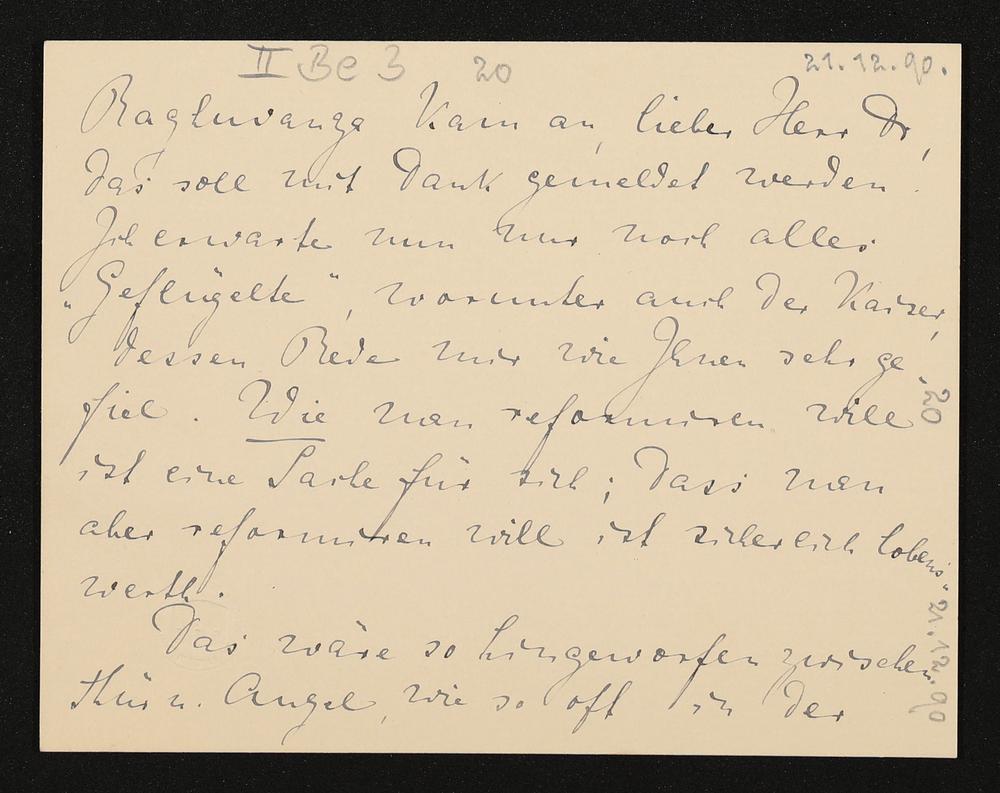 II Be 3 20 21.12.90.
Raghuvança kam an, lieber Herr Dr,
das soll mit Dank gemeldet werden.
Ich erwarte nun nur noch alles
„Geflügelte“, worunter auch der Kaiser,
dessen Rede mir wie Ihnen sehr ge„
fiel. Wie man reformiren will
ist eine Sache für sich; dass man
aber reformiren will ist sicherlich lobens„
werth.
Das wäre so hingeworfen zwischen
Thür u. Angel, wie so oft in der
20
21.12.90